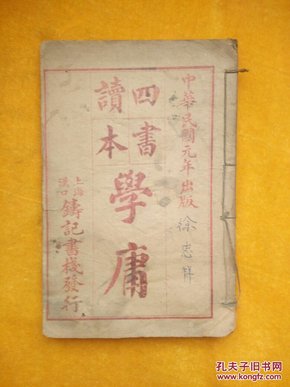 中華民國元年出版
徐志
四書
讀本
學庸
上海
漢口
鑄記書棧發行
孔夫子旧书网